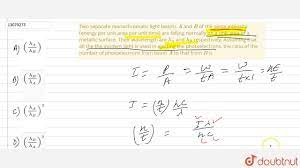 13079273
Two separate monochromatic light beams A and B of the same intensity
(energy per unit area per unit time) are falling normally on a unit area of a
metallic surface. Their wavelength are λA and λB respectively. Assuming that
all the the incident light is used in ejecting the photoelectrons, the ratio of the
number of photoelectrons from beam A to that from B is
A) (
B) (
C) (
D) (
I = P/A = W/tA = W/t×1 = nE/t
I = (n/t) hc/λ
(n/t) = Iλ/hc
doubtnut